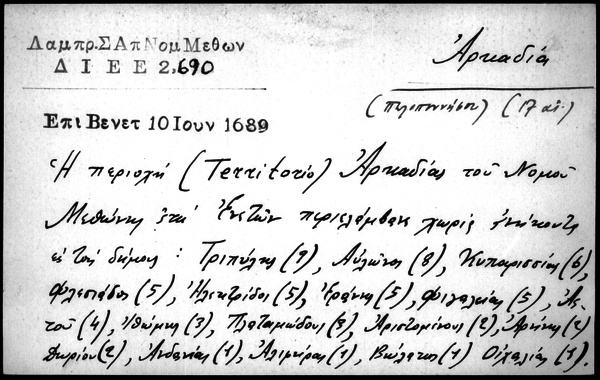 Λαμπρ.ΣΑπΝομΜεθων
ΔΙΕΕ 2,690
Ἀρκαδία
(Πελοποννήσου) (17 αἰ.)
Επι Βενετ 10 Ιουν 1689
Ἡ περιοχή (Territorio) Ἀρκαδίας τοῦ Νομοῦ
Μεθώνης ἐπί Ἐνετῶν περιελάμβανε χωρία ἀνήκοντα
εἰς τούς δήμους : Τριπύλης (9), Αὐλῶνος (8), Κυπαρισσίας (6),
Φλεσιάδος (5), Ἠλεκτρίδος (5), Ἐράνης (5), Φιγαλείας (5), Ἀε-
τοῦ (4), Ἰθώμης (3), Πλαταμώδους (3), Ἀριστομένους (2), Ἀρήνης (2)
Δωρίου (2), Ἀνδανίας (1), Ἁλιφείρας (1), (1) Οἰχαλίας (1).